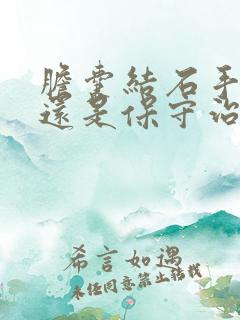 膽囊結石手
還是保守治
希言如遇
未经同意禁止转载